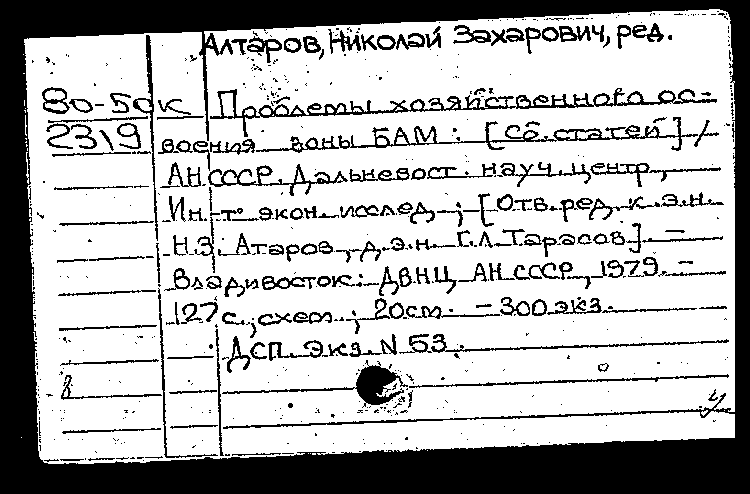 Алтаров, Николай Захарович, ред.
80-50к Проблемы хозяйственного ос-
2319 воения зоны БАМ: [Сб. статей] /
АН СССР. Дальневост. науч. центр,
Ин-т экон. исслед.; [Отв. ред. к.э.н.
Н.З. Атаров, д.э.н. Г.Л. Тарасов]. –
Владивосток: ДВНЦ АН СССР, 1979. –
127 с., схем.; 20 см. – 300 экз.
ДСП. Экз. N 53.